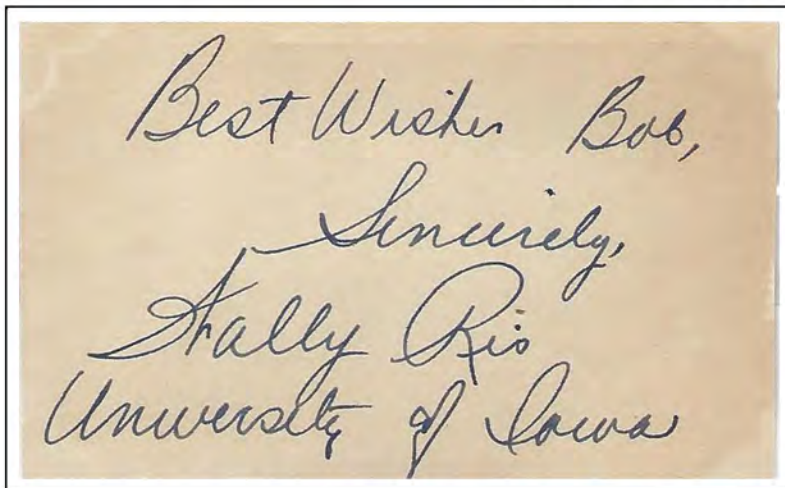 Best Wishes Bob,
Sincerely,
Wally Ris
University of Iowa